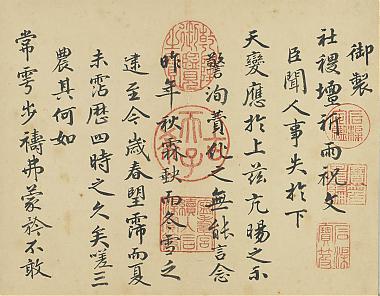 御製
社稷壇祈雨祝文
臣聞人事失於下
天變應於上茲亢暘之示
警洵之無能言念
昨年秋霖而冬雪之
逮至今歲春望霈而夏
未霑歷四時之久矣嗟三
農其何如
常雩步禱弗蒙矜不敢
乾隆御覽之寶
石渠寶笈